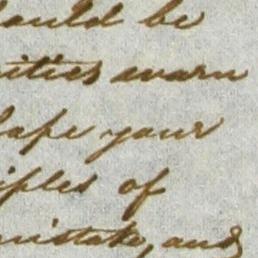 ould be
ities warn
your
iples of
mistake, and